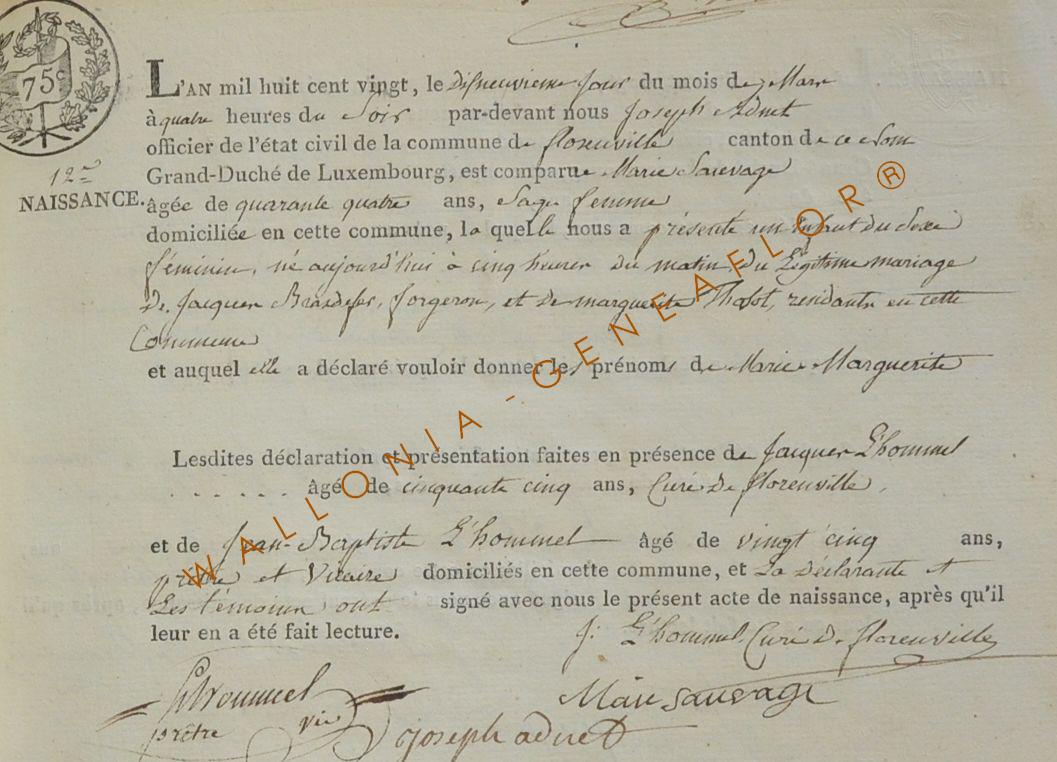 75c
L'AN mil huit cent vingt, le disneuvieme jour du mois de Mars
à quatre heures du Soir par-devant nous Joseph Adnet
officier de l'état civil de la commune de florenville canton de ce Nom
12me
Grand-Duché de Luxembourg, est comparue Marie Sauvage
NAISSANCE.
âgée de quarante quatre ans, Sage femme
domiciliée en cette commune, la quelle nous a présenté un Enfant du Sexe
féminin, né aujourd'hui à cinq heures du matin, du Légitime mariage
De Jacques Brasdefer, forgeron, et de marguerite Thabot, rendants en cette
Commune
et auquel elle a déclaré vouloir donner les prénoms de Marie Marguerite
Lesdites déclaration et présentation faites en présence de Jacques L'hommel
. . . . . . âgé de cinquante cinq ans, Curé De florenville,
et de Jean-Baptiste L'hommel âgé de vingt cinq ans,
prêtre et Vicaire domiciliés en cette commune, et La Déclarante et
Les témoins ont signé avec nous le présent acte de naissance, après qu'il
leur en a été fait lecture.
J: L'hommel Curé De florenville
L'hommel
Marie sauvage
prêtre vic
joseph adnet
WALLONIA-GENEAFLOR®